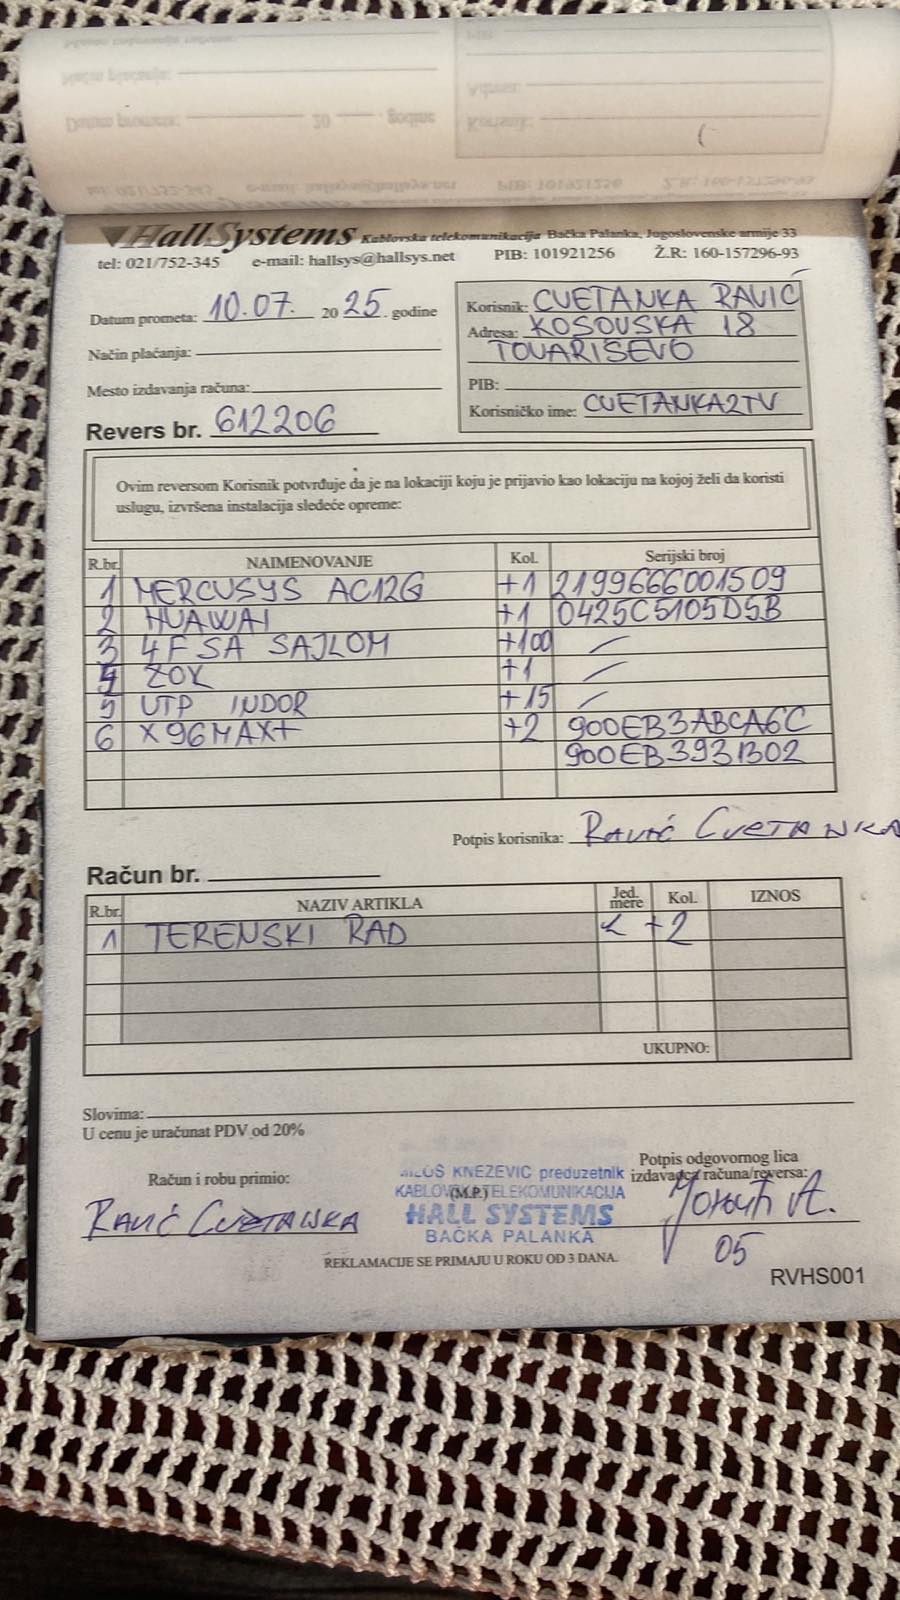 HallSystems Kablovska telekomunikacija Bačka Palanka, Jugoslovenske armije 33
tel: 021/752-345 e-mail: hallsys@hallsys.net PIB: 101921256 Ž.R: 160-157296-93
Datum prometa: 10.07. 2025. godine
Način plaćanja:
Mesto izdavanja računa:
Revers br. 612206
Korisnik: CVETANKA RAVIĆ
Adresa: KOSOVSKA 18
TOVARISEVO
PIB:
Korisničko ime: CVETANKA2TV
Ovim reversom Korisnik potvrđuje da je na lokaciji koju je prijavio kao lokaciju na kojoj želi da koristi
uslugu, izvršena instalacija sledeće opreme:
R.br. NAIMENOVANJE Kol. Serijski broj
1 MERCUSYS AC12G +1 2199666001509
2 HUAWAI +1 0425C5105D5B
3 4F SA SAJLOM +100 /
4 ZOK +1 /
5 UTP INDOR +15 /
6 X96MAX+ +2 900EB3ABCA6C
900EB3931302
Potpis korisnika: Ravić Cvetanka
Račun br.
R.br. NAZIV ARTIKLA Jed. mere Kol. IZNOS
1 TERENSKI RAD +2
UKUPNO:
Slovima:
U cenu je uračunat PDV od 20%
Račun i robu primio:
Ravić Cvetanka
MILOŠ KNEŽEVIĆ preduzetnik
KABLOVSKA TELEKOMUNIKACIJA
(M.P.)
HALL SYSTEMS
BAČKA PALANKA
Potpis odgovornog lica
izdavaoca računa/reversa:
05
REKLAMACIJE SE PRIMAJU U ROKU OD 3 DANA.
RVHS001